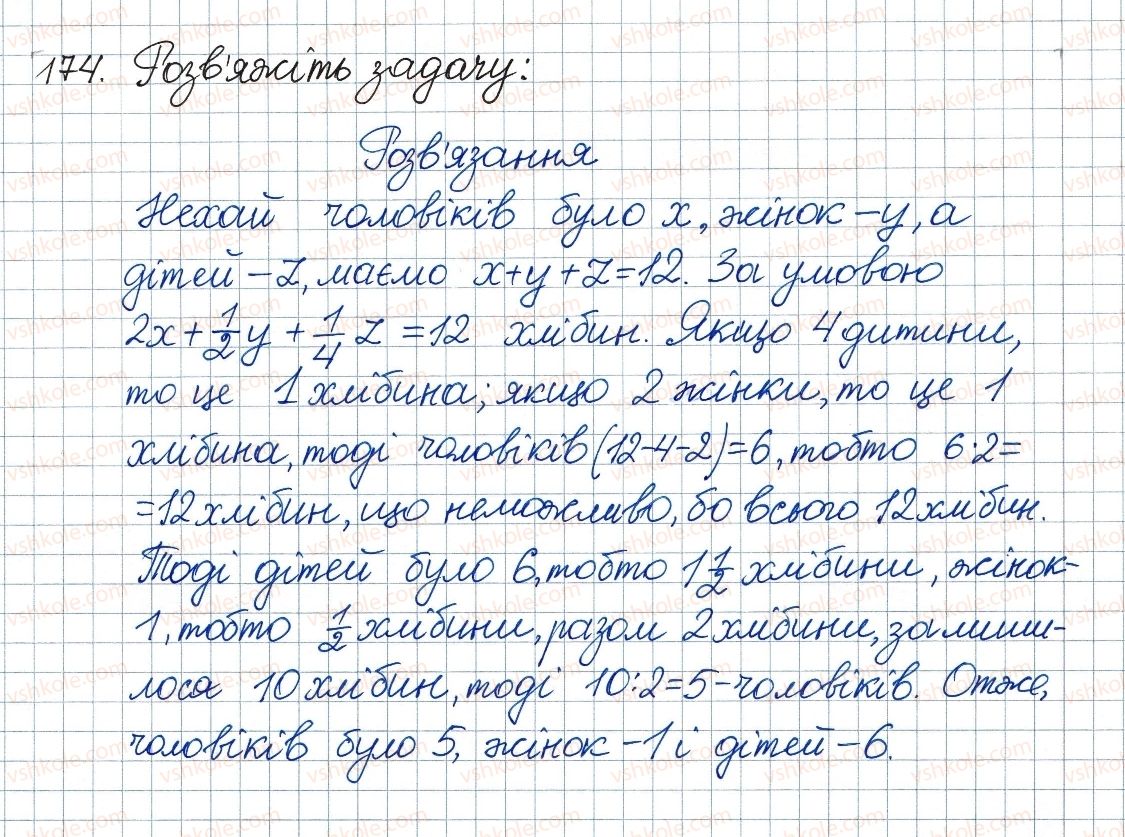 174. Розв'яжіть задачу:
Розв'язання
Нехай чоловіків було x, жінок – y, а
дітей – z, маємо x+y+z=12. За умовою
2x+1/2y+1/4z=12 хлібин. Якщо 4 дитини,
то це 1 хлібина; якщо 2 жінки, то це 1
хлібина, тоді чоловіків (12-4-2)=6, тобто 6·2=
=12 хлібин, що неможливо, бо всього 12 хлібин.
Тоді дітей було 6, тобто 1 1/2 хлібини, жінок-
1, тобто 1/2 хлібини, разом 2 хлібини, залиши-
лося 10 хлібин, тоді 10:2=5 – чоловіків. Отже,
чоловіків було 5, жінок – 1 і дітей – 6.
vshkole.com